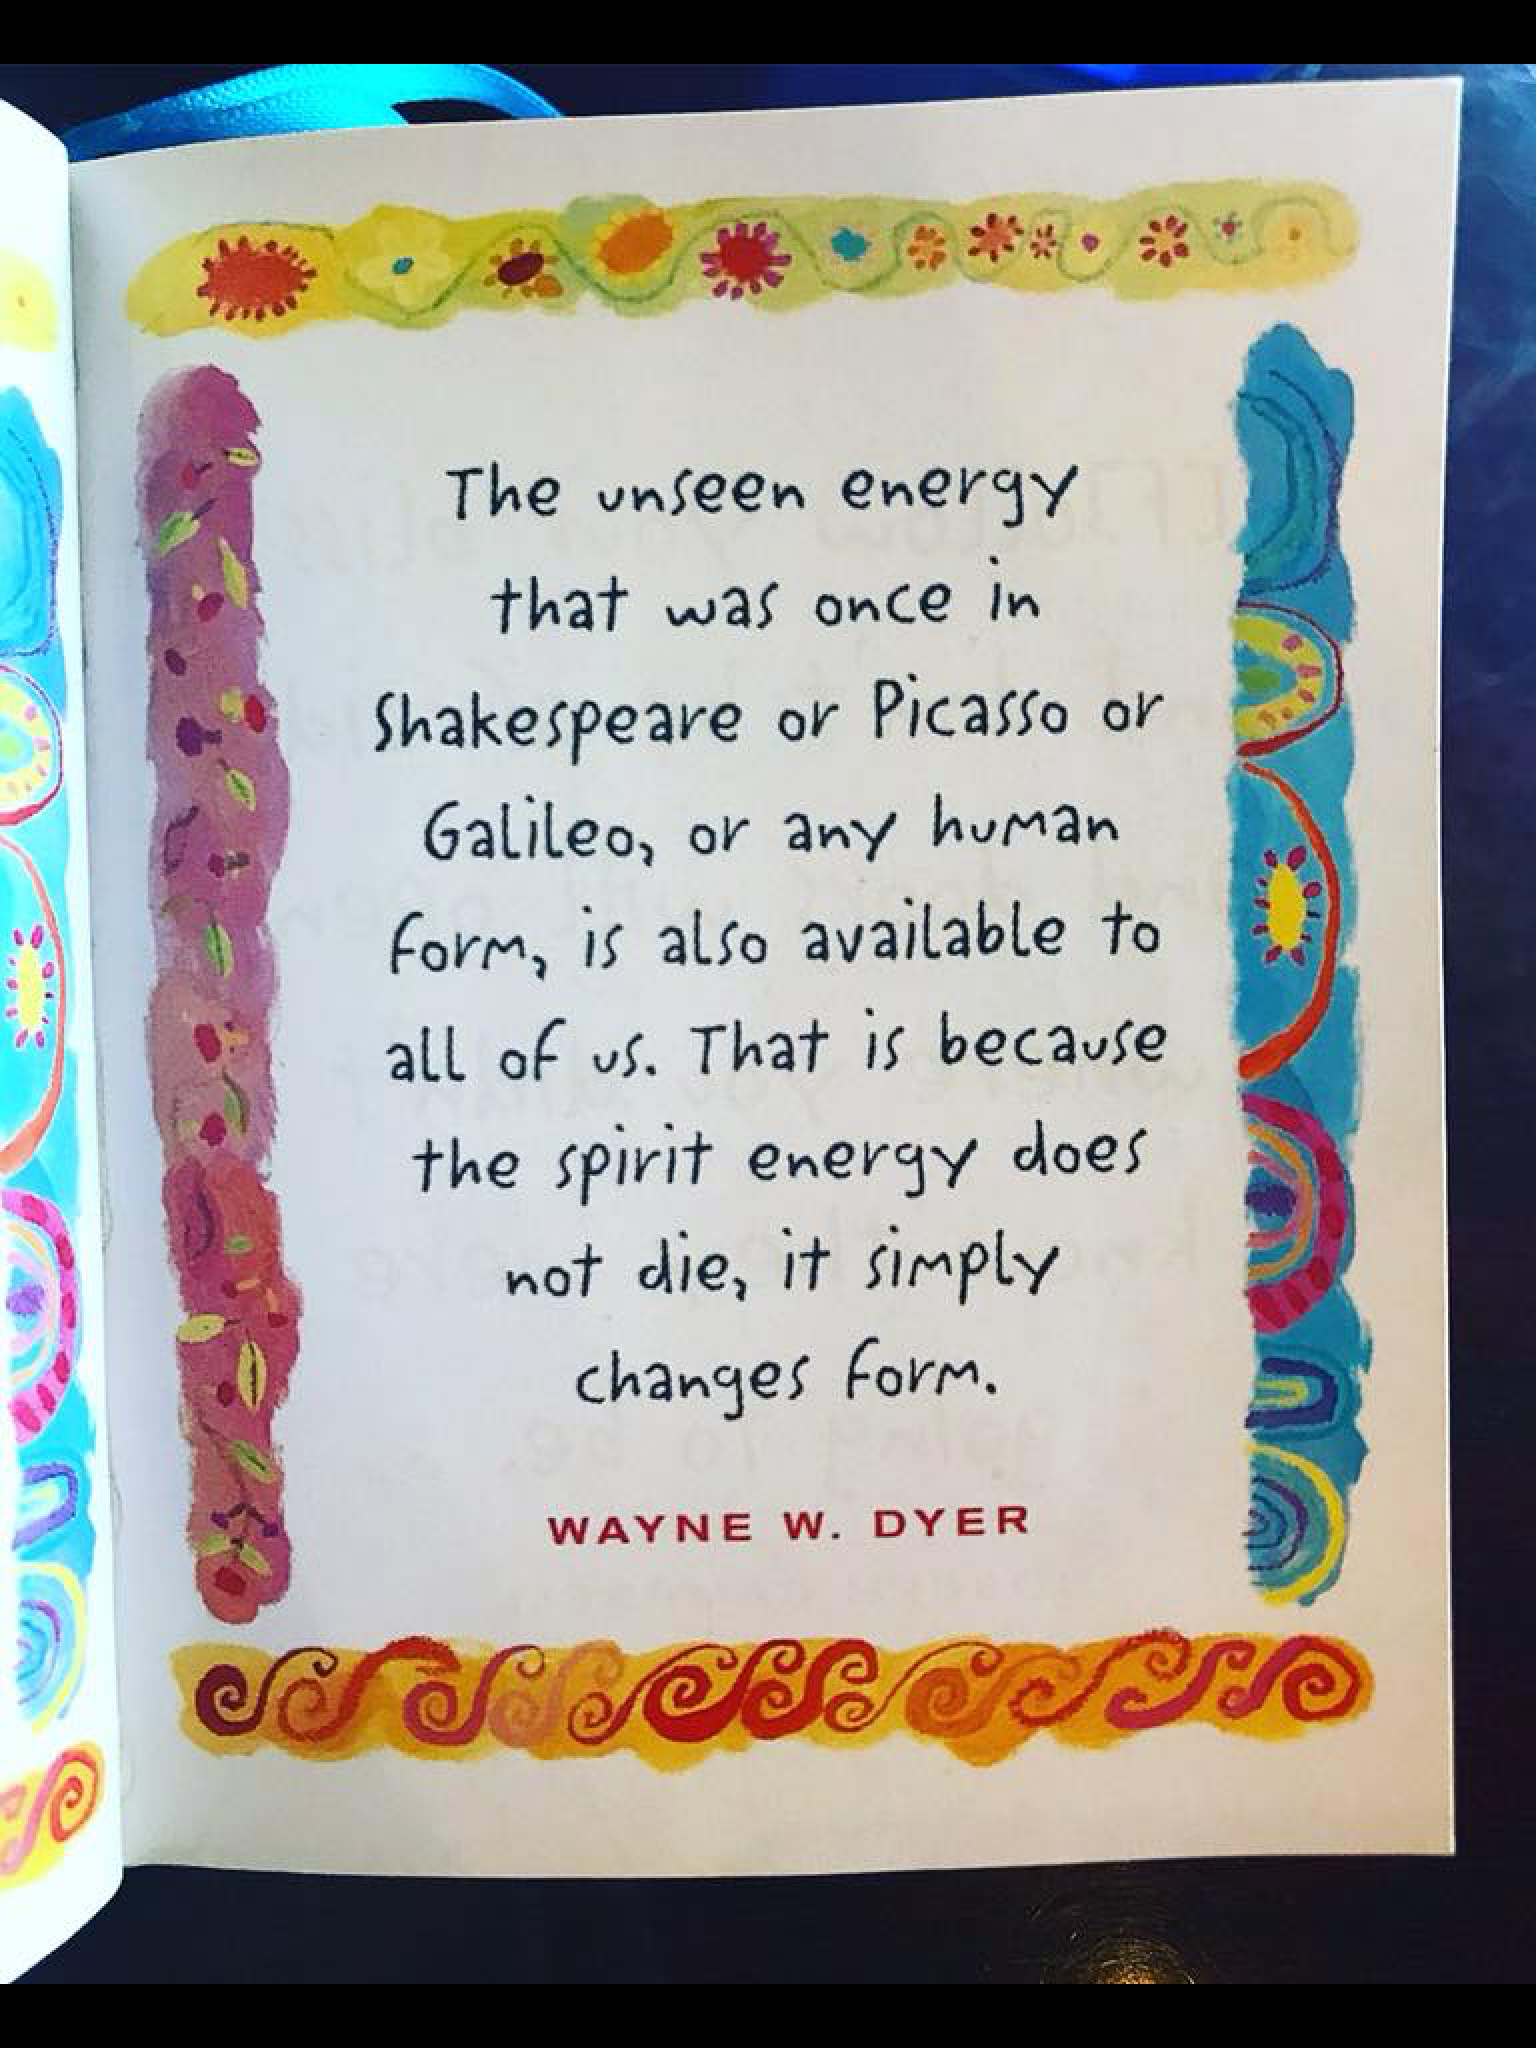 The unseen energy
that was once in
Shakespeare or Picasso or
Galileo, or any human
form, is also available to
all of us. That is because
the spirit energy does
not die, it simply
changes form.
WAYNE W. DYER